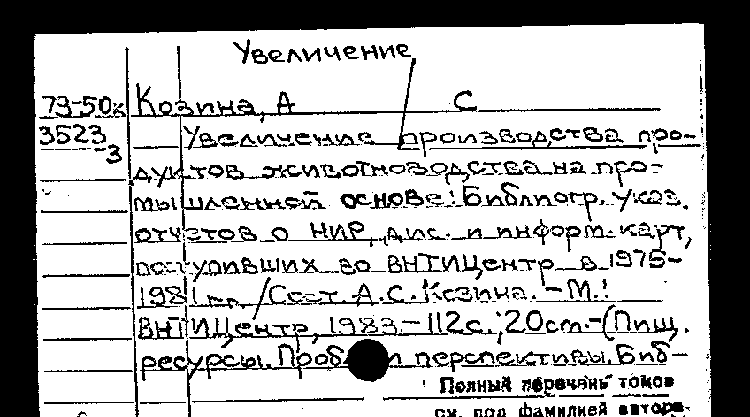 Увеличение
73-50к Козина, А С
3523 Увеличение производства про-
-3 дуктов животноводства на про-
мышленной основе: Библиогр. указ.
отчетов о НИР, дис. и информ. карт,
поступивших во ВНТИЦентр в 1975-
1981 гг. / Сост. А.С. Козина. - М.:
ВНТИЦентр, 1983. - 112 с.; 20 см. - (Пищ.
ресурсы. Пробл и перспективы. Биб-
Полный перечень томов
см. под фамилией автора-